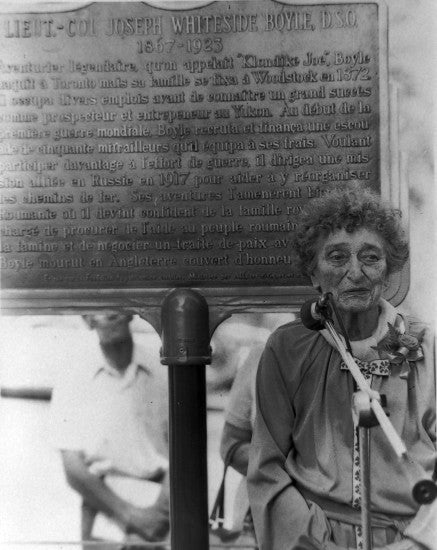 LIEUT.-COL JOSEPH WHITESIDE BOYLE, D.S.O.
1867-1923
Aventurier légendaire, qu'on appelait "Klondike Joe", Boyle
naquit à Toronto mais sa famille se fixa à Woodstock en 1872.
Il occupa divers emplois avant de connaître un grand succès
comme prospecteur et entrepeneur au Yukon. Au début de la
première guerre mondiale, Boyle recruta et finança une escou
ade de cinquante mitrailleurs qu'il équipa à ses frais. Voulant
participer davantage à l'effort de guerre, il dirigea une mis
sion alliée en Russie en 1917 pour aider à y réorganiser
les chemins de fer. Ses aventures l'amenèrent
oumanie où il devint confident de la famille
chargé de procurer de l'aide au peuple roumain
la famine et de négocier un traité de paix av
Boyle mourut en Angleterre couvert d'honneu